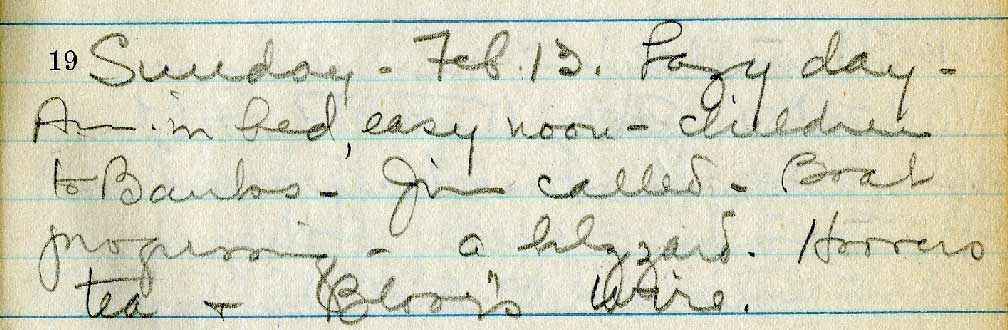 19 Sunday - Feb. 13. Lazy day -
Am. in bed, easy noon - children
to Banks - Jim called - Boat
progressing - a blizzard. Hoovers
tea + wire.